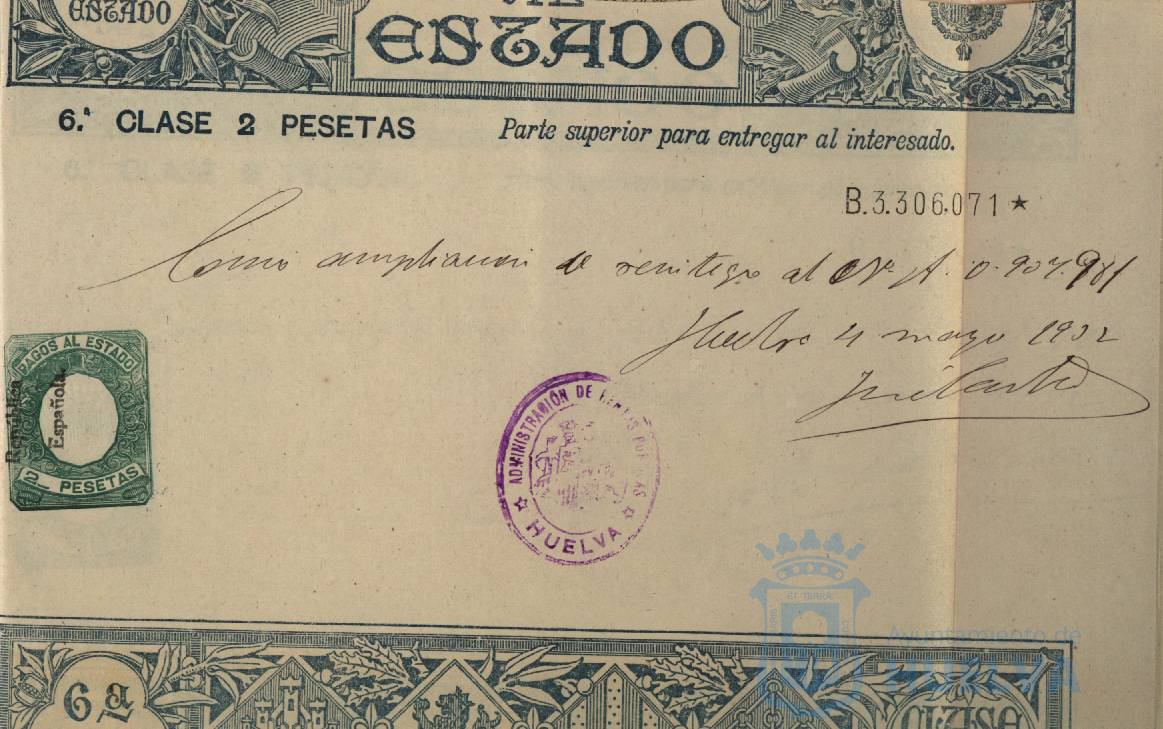 ESTADO
ESTADO
6.ª CLASE 2 PESETAS
Parte superior para entregar al interesado.
B.3.306.071 ★
Como ampliacion de reintegro al Nº A. 0.907.981
Huelva 4 mayo 1932
PAGOS AL ESTADO
República
Española.
2_ PESETAS
ADMINISTRACIÓN DE RENTAS PUBLICAS
★ HUELVA ★
Ayuntamiento de
HUELVA
6ª
CLASE